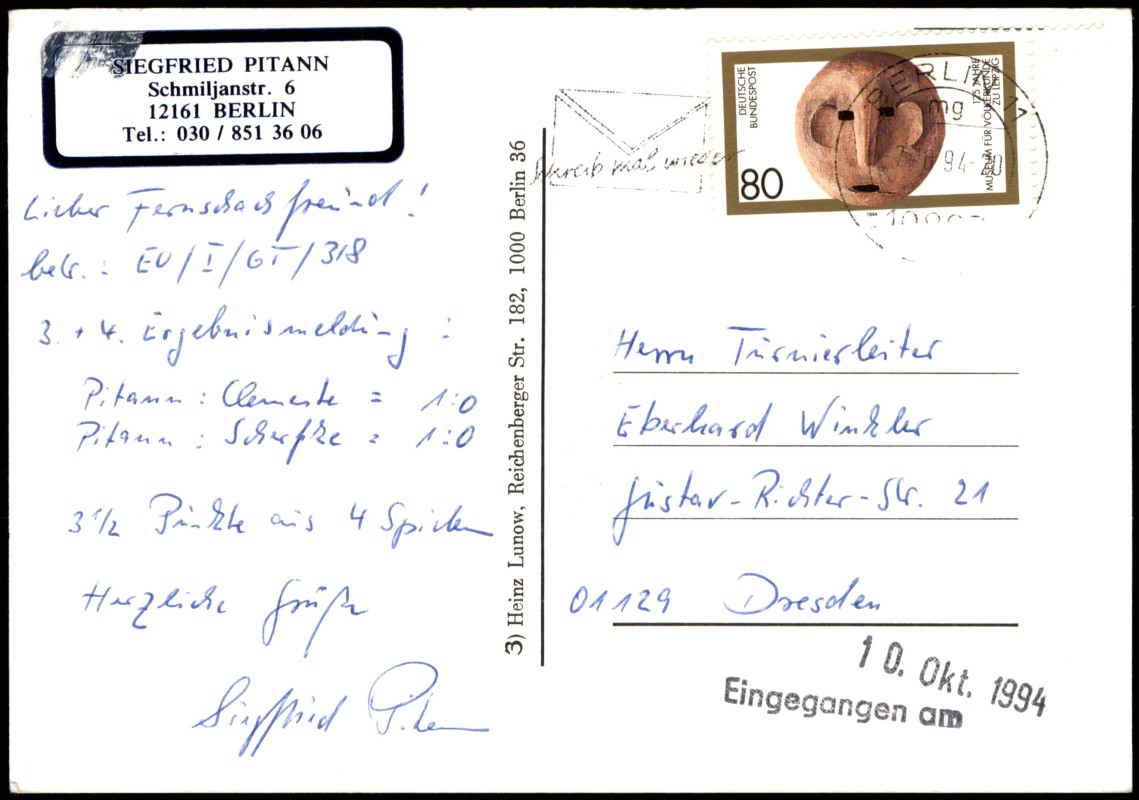 SIEGFRIED PITANN
Schmiljanstr. 6
12161 BERLIN
Tel.: 030 / 851 36 06
Lieber Fernschachfreund!
betr.: EU/I/GT/318
3. + 4. Ergebnismeldung:
Pitann : Clemente = 1:0
Pitann : Scherfke = 1:0
3 1/2 Punkte aus 4 Spielen
Herzliche Grüße
Siegfried Pitann
3) Heinz Lunow, Reichenberger Str. 182, 1000 Berlin 36
Schreib mal wieder
DEUTSCHE
BUNDESPOST
80
175 JAHRE
MUSEUM FÜR VÖLKERKUNDE
ZU LEIPZIG
1994
BERLIN 11
mg
94-20
Herrn Turnierleiter
Eberhard Winkler
Gustav-Richter-Str. 21
01129 Dresden
10. Okt. 1994
Eingegangen am